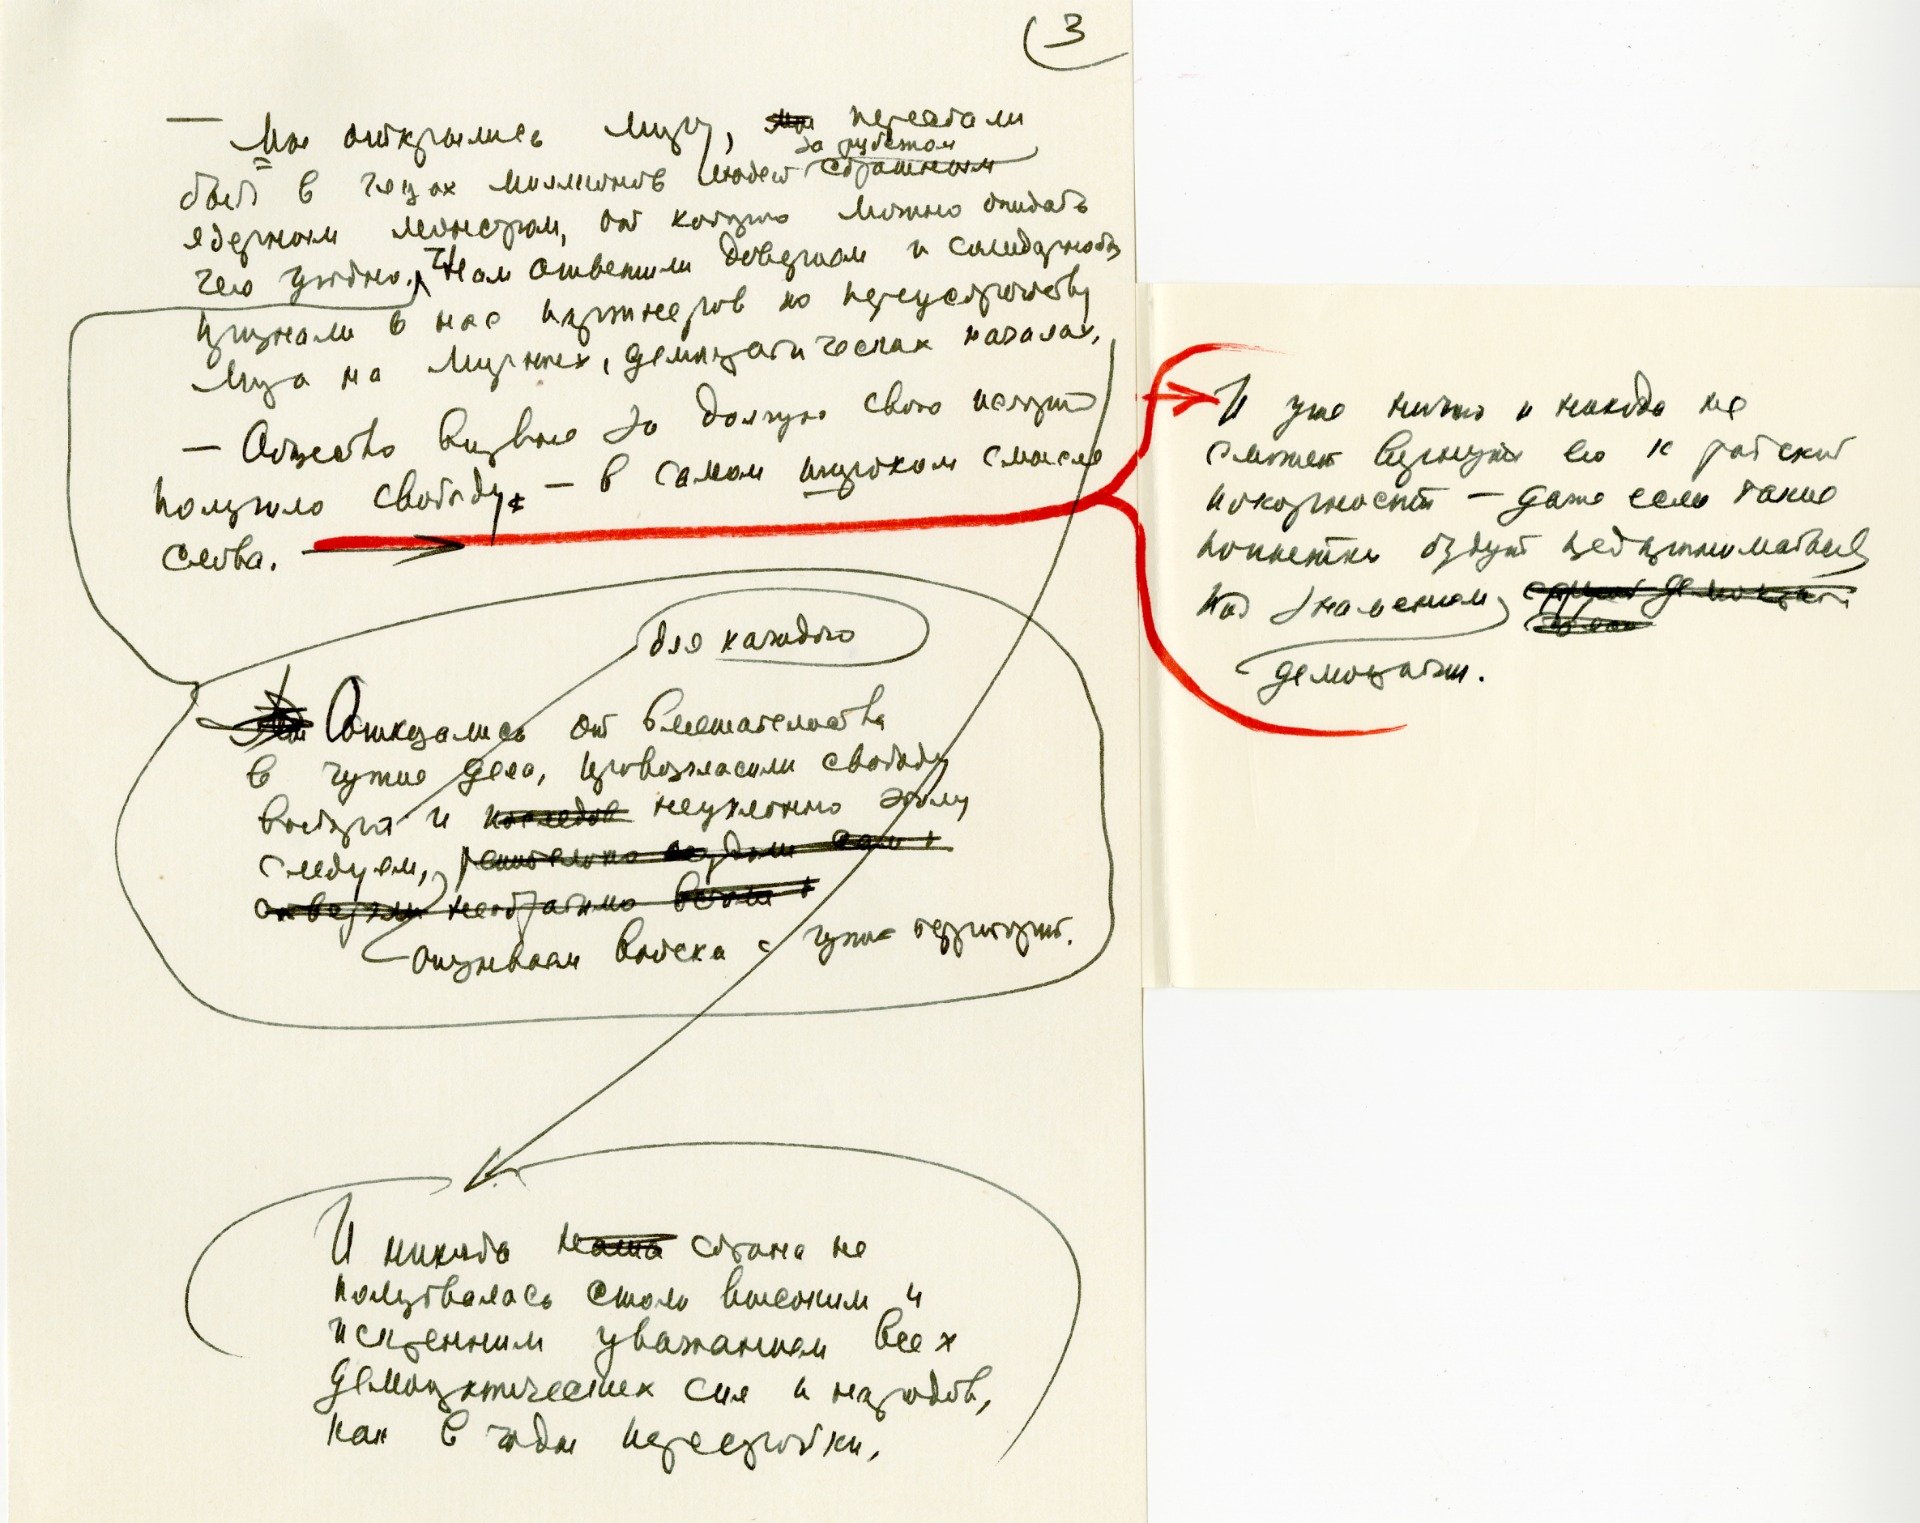 3
— Мы открылись миру, мы перестали
за рубежом
быть в глазах миллионов людей страшным
ядерным монстром, от которого можно ожидать
чего угодно. Нам ответили доверием и солидарностью
признали в нас партнеров по переустройству
мира на мирных, демократических началах.
— Общество впервые за долгую свою историю
получило свободу — в самом широком смысле
слова.
И уже ничто и никогда не
сможет вернуть его к рабской
покорности — даже если такие
попытки будут предприниматься
под знаменем
демократии.
для каждого
Отказались от вмешательства
в чужие дела, провозгласили свободу
выбора и последов неуклонно этому
следуем, решительно
отвергли необратимо
отзываем войска с чужих территорий.
И никогда наша страна не
пользовалась столь высоким и
искренним уважением всех
демократических сил и народов,
как в годы перестройки.